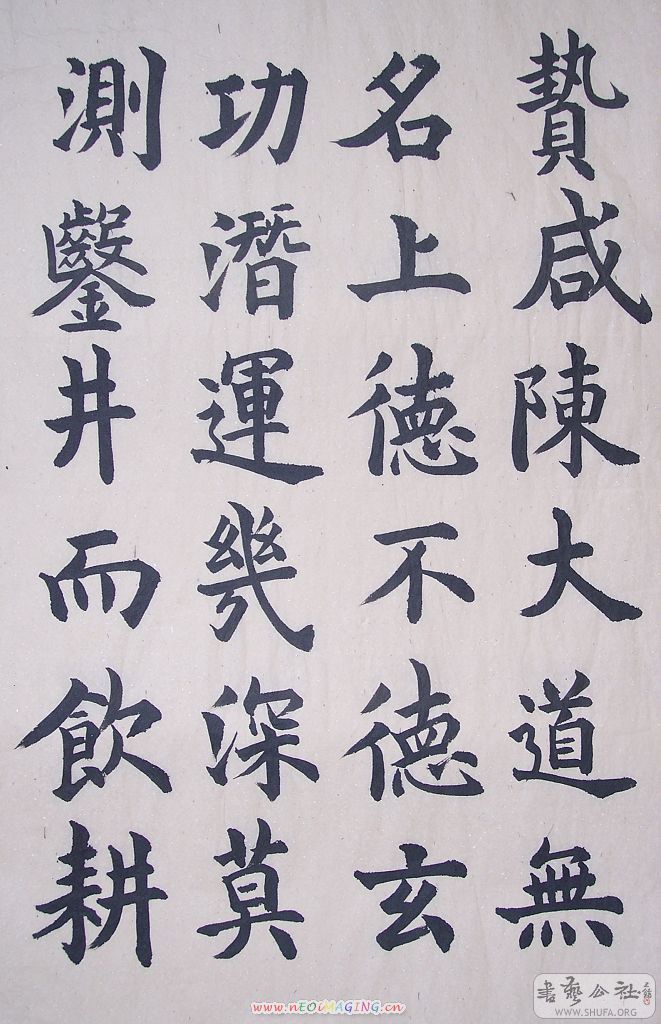 贄咸陳大道無
名上徳不徳玄
功潛運幾深莫
測鑿井而飲耕
www.nEOiMAGiNG.cn
書藝公社
WWW.SHUFA.ORG